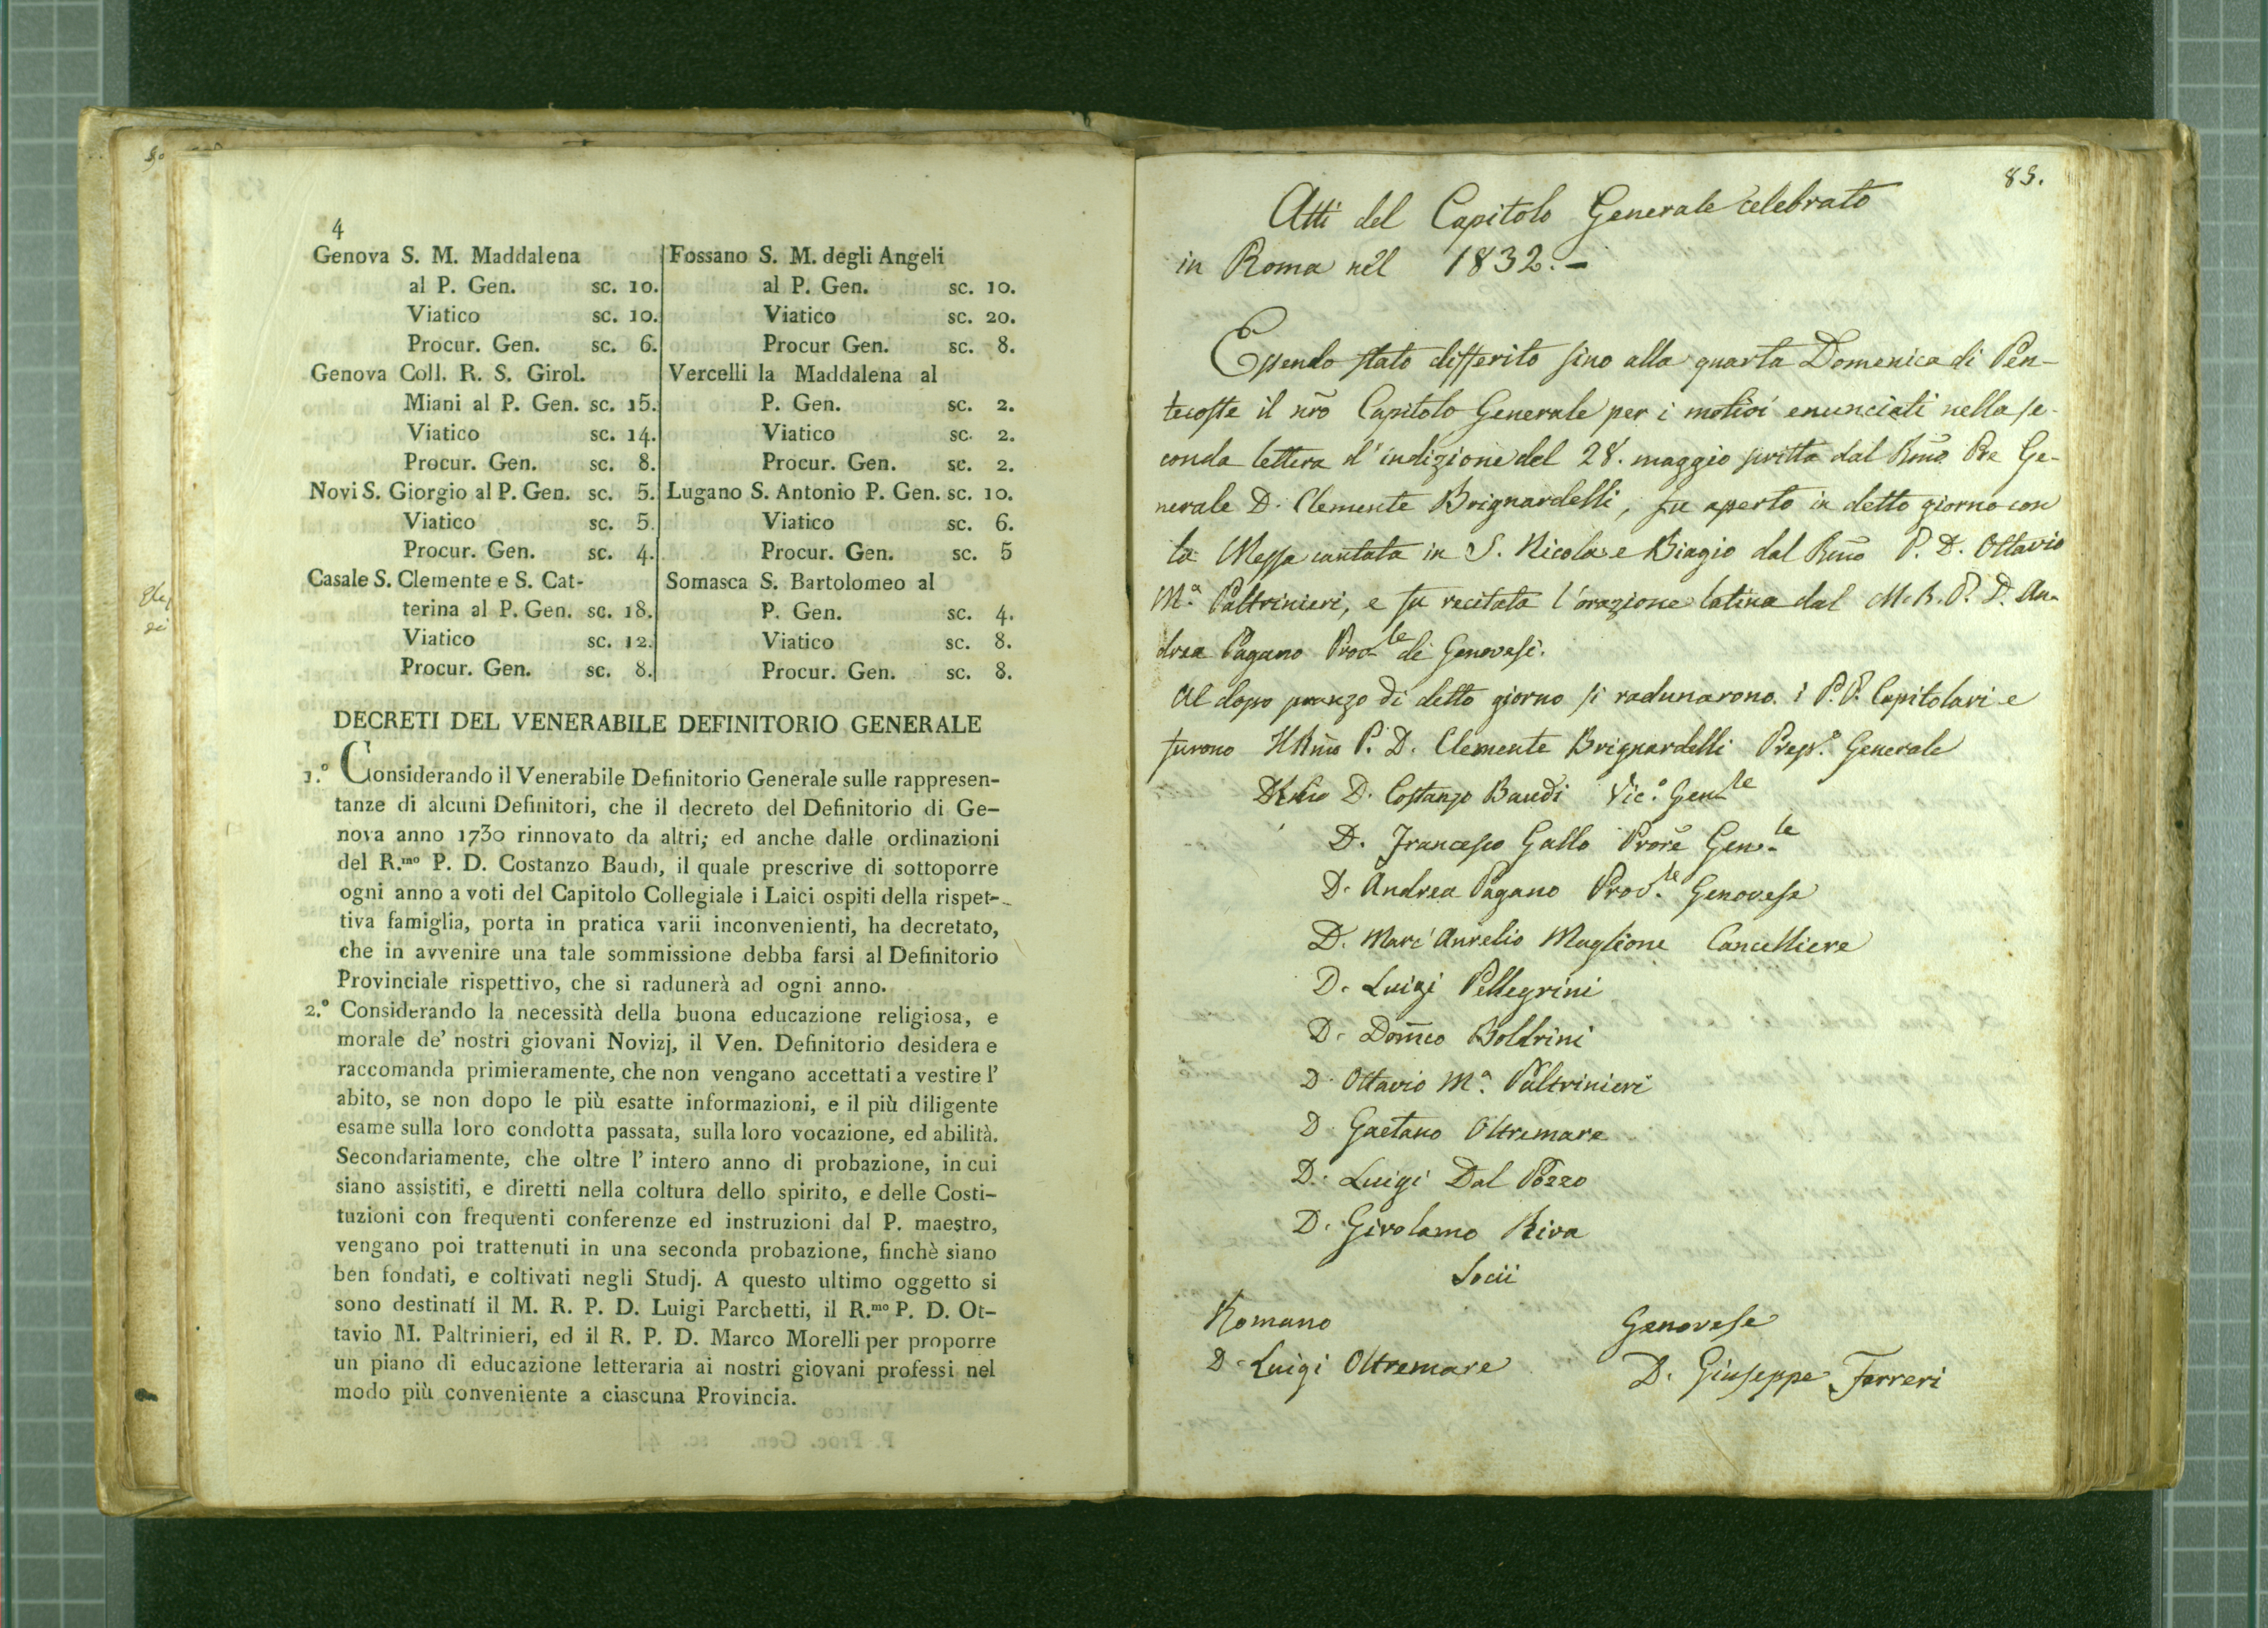 4
Genova S. M. Maddalena
al P. Gen. sc. 10.
Viatico sc. 10.
Procur. Gen. sc. 6.
Genova Coll. R. S. Girol.
Miani al P. Gen. sc. 15.
Viatico sc. 14.
Procur. Gen. sc. 8.
Novi S. Giorgio al P. Gen. sc. 5.
Viatico sc. 5.
Procur. Gen. sc. 4.
Casale S. Clemente e S. Cat-
terina al P. Gen. sc. 18.
Viatico sc. 12.
Procur. Gen. sc. 8.
Fossano S. M. degli Angeli
al P. Gen. sc. 10.
Viatico sc. 20.
Procur Gen. sc. 8.
Vercelli la Maddalena al
P. Gen. sc. 2.
Viatico sc. 2.
Procur. Gen. sc. 2.
Lugano S. Antonio P. Gen. sc. 10.
Viatico sc. 6.
Procur. Gen. sc. 5
Somasca S. Bartolomeo al
P. Gen. sc. 4.
Viatico sc. 8.
Procur. Gen. sc. 8.
DECRETI DEL VENERABILE DEFINITORIO GENERALE
1.° Considerando il Venerabile Definitorio Generale sulle rappresen-
tanze di alcuni Definitori, che il decreto del Definitorio di Ge-
nova anno 1730 rinnovato da altri; ed anche dalle ordinazioni
del R.mo P. D. Costanzo Baudi, il quale prescrive di sottoporre
ogni anno a voti del Capitolo Collegiale i Laici ospiti della rispet-
tiva famiglia, porta in pratica varii inconvenienti, ha decretato,
che in avvenire una tale sommissione debba farsi al Definitorio
Provinciale rispettivo, che si radunerà ad ogni anno.
2.° Considerando la necessità della buona educazione religiosa, e
morale de' nostri giovani Novizj, il Ven. Definitorio desidera e
raccomanda primieramente, che non vengano accettati a vestire l'
abito, se non dopo le più esatte informazioni, e il più diligente
esame sulla loro condotta passata, sulla loro vocazione, ed abilità.
Secondariamente, che oltre l' intero anno di probazione, in cui
siano assistiti, e diretti nella coltura dello spirito, e delle Costi-
tuzioni con frequenti conferenze ed instruzioni dal P. maestro,
vengano poi trattenuti in una seconda probazione, finchè siano
ben fondati, e coltivati negli Studj. A questo ultimo oggetto si
sono destinati il M. R. P. D. Luigi Parchetti, il R.mo P. D. Ot-
tavio M. Paltrinieri, ed il R. P. D. Marco Morelli per proporre
un piano di educazione letteraria ai nostri giovani professi nel
modo più conveniente a ciascuna Provincia.
85.
Atti del Capitolo Generale celebrato
in Roma nel 1832. -
Essendo stato differito sino alla quarta Domenica di Pen-
tecoste il nr̃o Capitolo Generale per i motivi enunciati nella se-
conda lettera d'indizione del 28. maggio scritta dal Rm̃o Pre Ge-
nerale D. Clemente Brignardelli, fu aperto in detto giorno con
la Messa cantata in S. Nicola e Biagio dal Rm̃o P. D. Ottavio
M.a Paltrinieri, e fu recitata l'orazione latina dal M. R. P. D. An-
drea Pagano Prov.le di Genovesi.
Al dopo pranzo di detto giorno si radunarono i P. P. Capitolari e
furono Il Rm̃o P. D. Clemente Brignardelli Prep.o Generale
D. Costanzo Baudi Vic.o Gen.le
D. Francesco Gallo Prorẽ Gen.le
D. Andrea Pagano Prov.le Genovese
D. Marc'Aurelio Maglione Cancelliere
D. Luigi Pellegrini
D. Dom̃co Boldrini
D. Ottavio M.a Paltrinieri
D. Gaetano Oltremare
D. Luigi Dal Pozzo
D. Girolamo Riva
Socii
Romano Genovese
D. Luigi Oltremare D. Giuseppe Ferreri